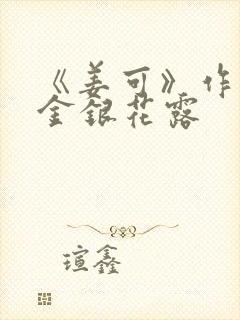 《姜可》作
金银花露
瑄鑫